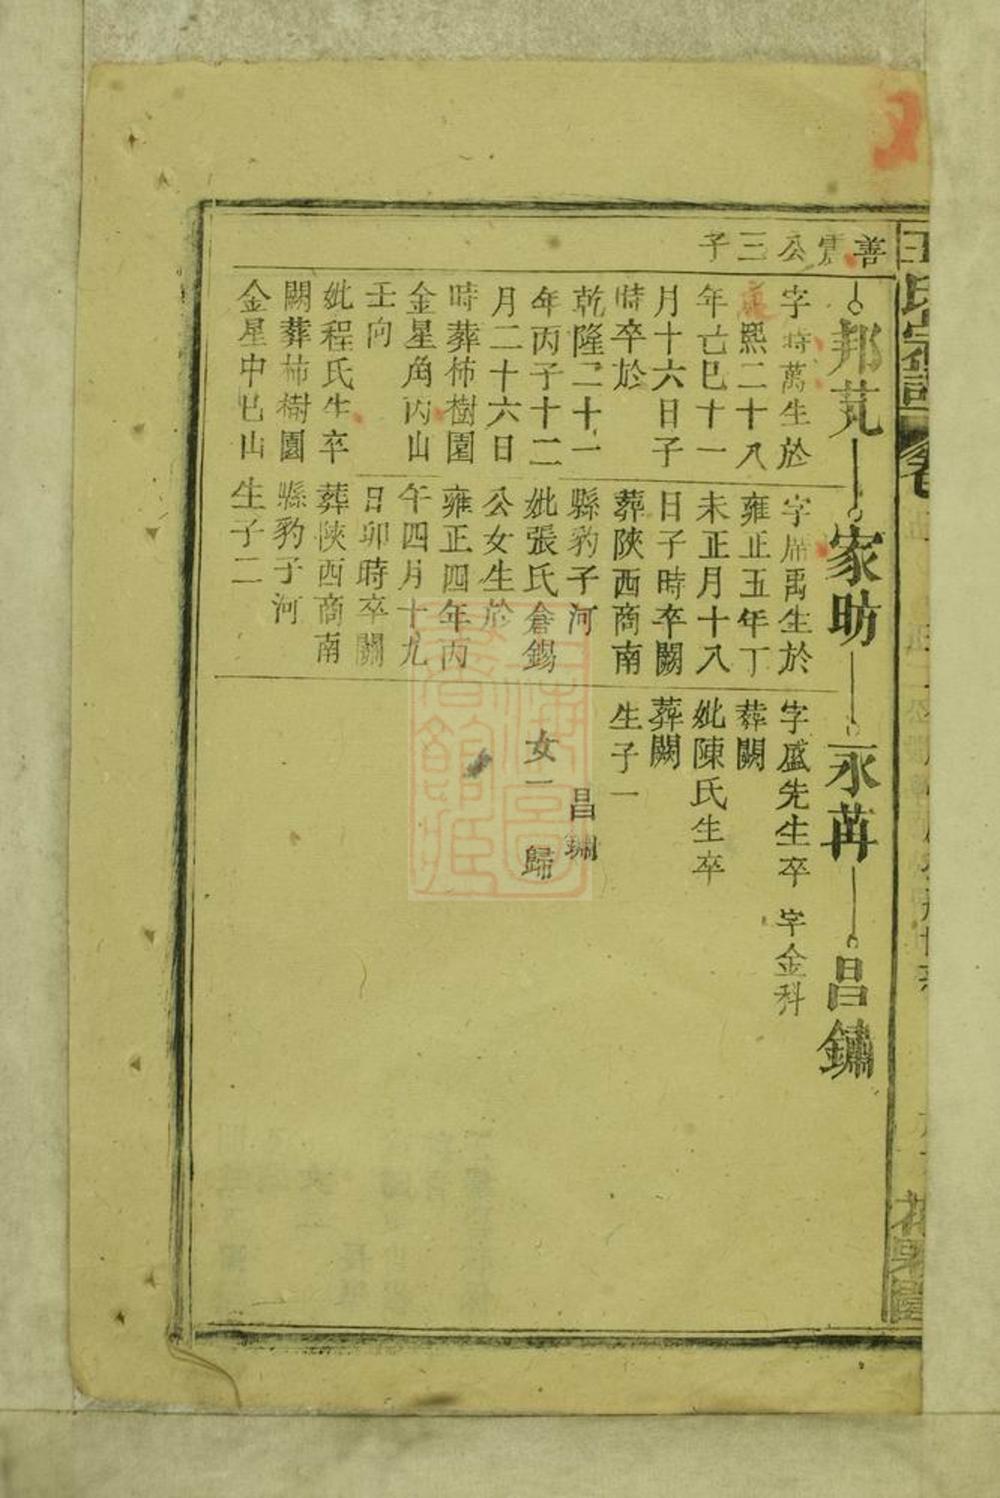 王氏宗譜卷
善震公三子
邦芃
家昉
永苒
昌鏽
字時萬生於
康熙二十八
年亡巳十一
月十六日子
時卒於
乾隆二十一
年丙子十二
月二十六日
時葬柿樹園
金星角丙山
壬向
妣程氏生卒
闕葬柿樹園
金星中巳山
字席禹生於
雍正五年丁
未正月十八
日子時卒闕
葬陝西商南
縣豹子河
妣張氏倉錫
公女生於
雍正四年丙
午四月十九
日卯時卒闕
葬陝西商南
縣豹子河
生子二
字盛先生卒
葬闕
妣陳氏生卒
葬闕
生子一
昌鏽
女一 歸
字金科